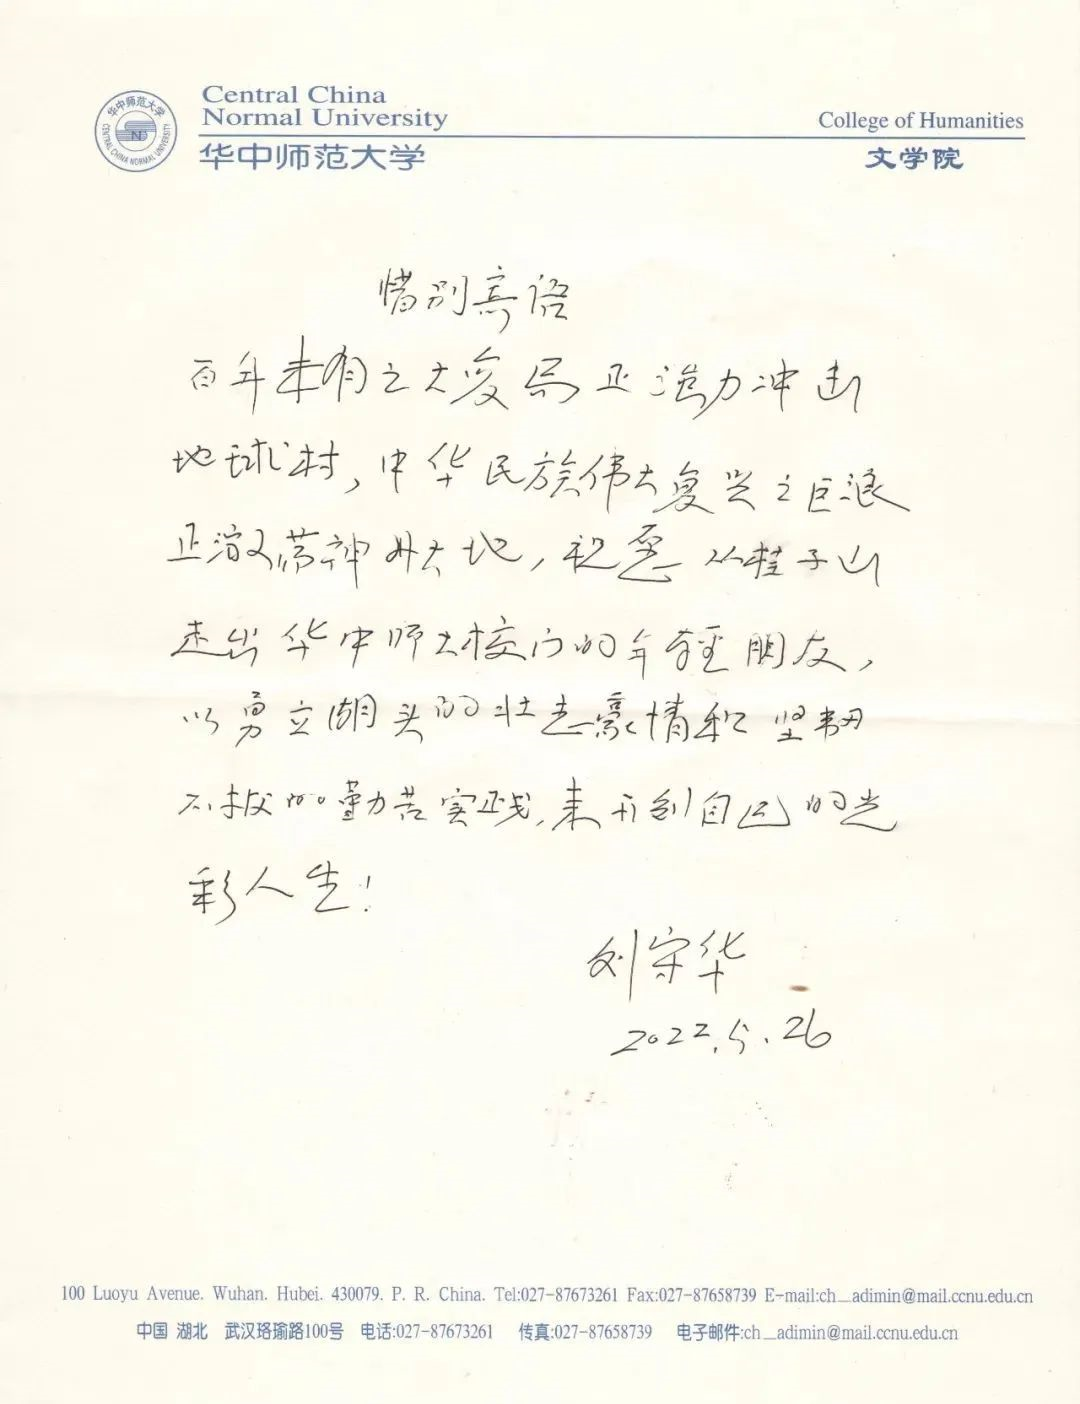 华中师范大学
CENTRAL CHINA NORMAL UNIVERSITY
Central China
Normal University
华中师范大学
College of Humanities
文学院
惜别寄语
百年未有之大变局正强力冲击
地球村，中华民族伟大复兴之巨浪
正激荡神州大地，祝愿从桂子山
走出华中师大校门的年轻朋友，
以勇立潮头的壮志豪情和坚韧
不拔的勤苦实践，来开创自己的光
彩人生！
刘守华
2022.5.26
100 Luoyu Avenue. Wuhan. Hubei. 430079. P. R. China. Tel:027-87673261 Fax:027-87658739 E-mail:ch_adimin@mail.ccnu.edu.cn
中国 湖北 武汉珞瑜路100号 电话:027-87673261 传真:027-87658739 电子邮件:ch_adimin@mail.ccnu.edu.cn